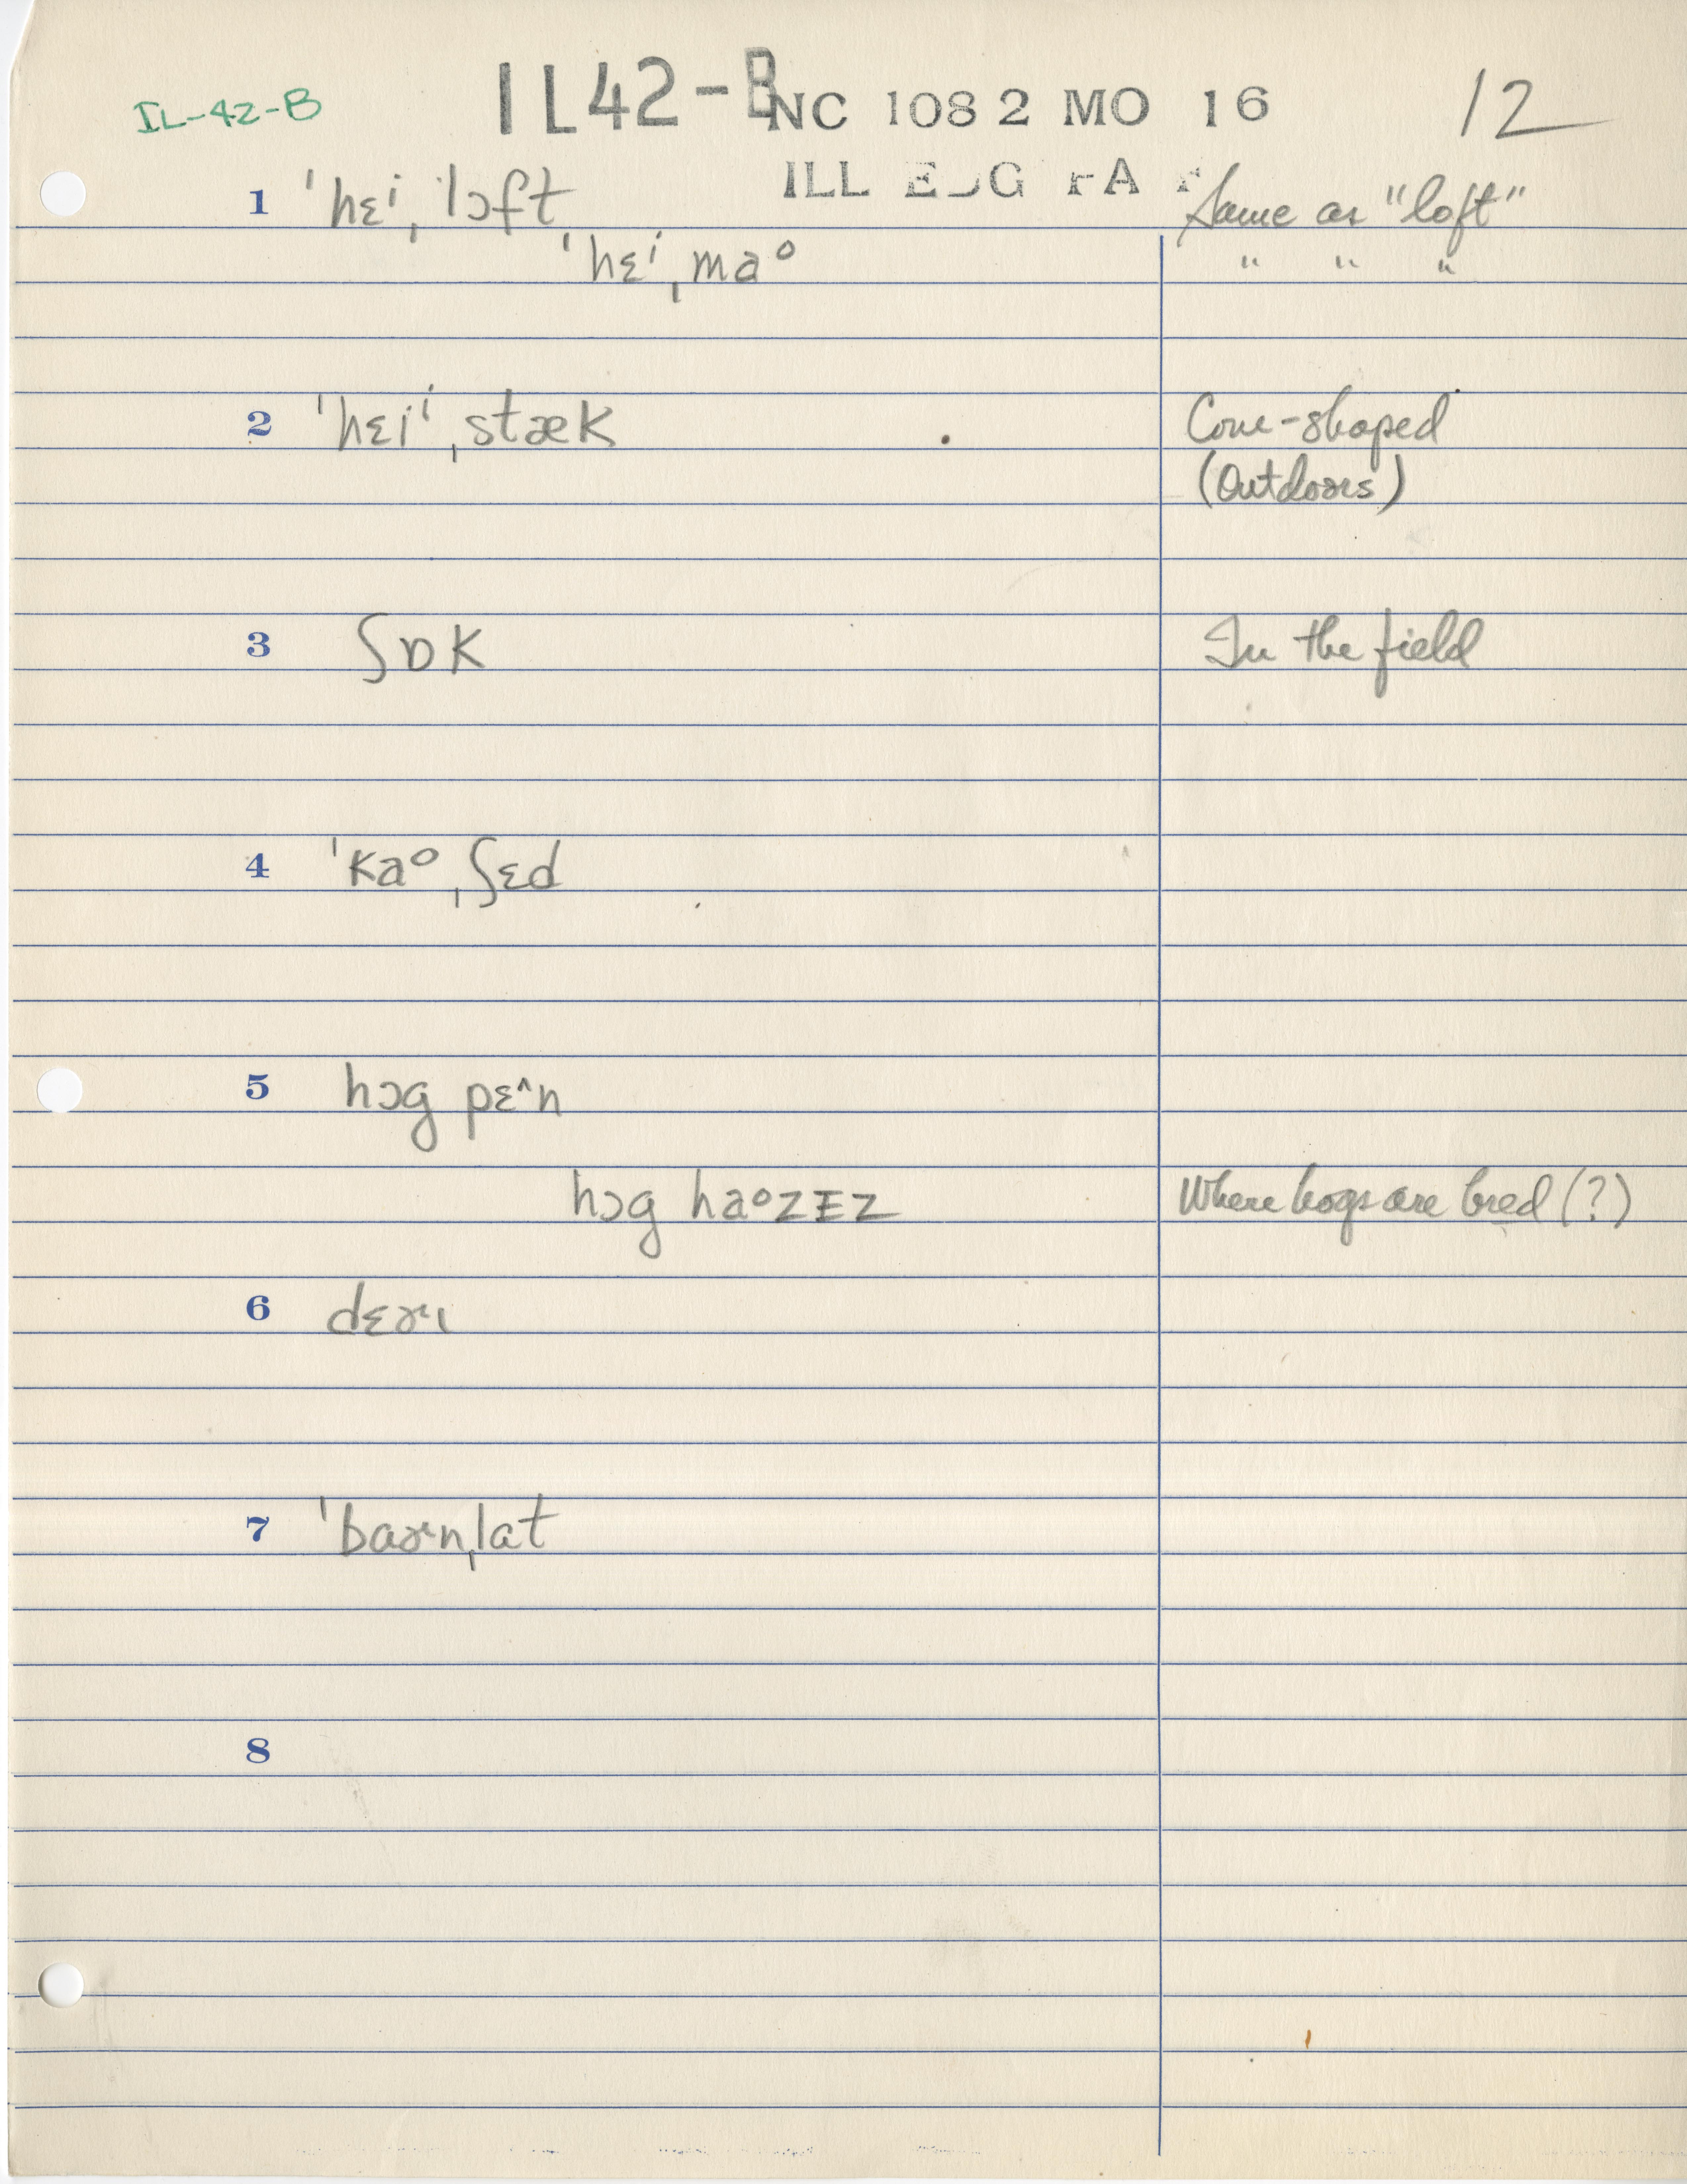 IL-42-B IL42-B NC 1082 MO 16 12
ILL
1 ˈhɛⁱˌlɔft Same as "loft"
ˈhɛⁱˌmaᵒ " " "
2 ˈhɛıⁱˌstæk Cone-shaped
(Outdoors)
3 ʃɒk In the field
4 ˈkaᵒˌʃɛd
5 hɔg pɛ^n
hɔg haᵒzɪz Where hogs are bred (?)
6 dɛɚı
7 ˈbaɚnˌlat
8